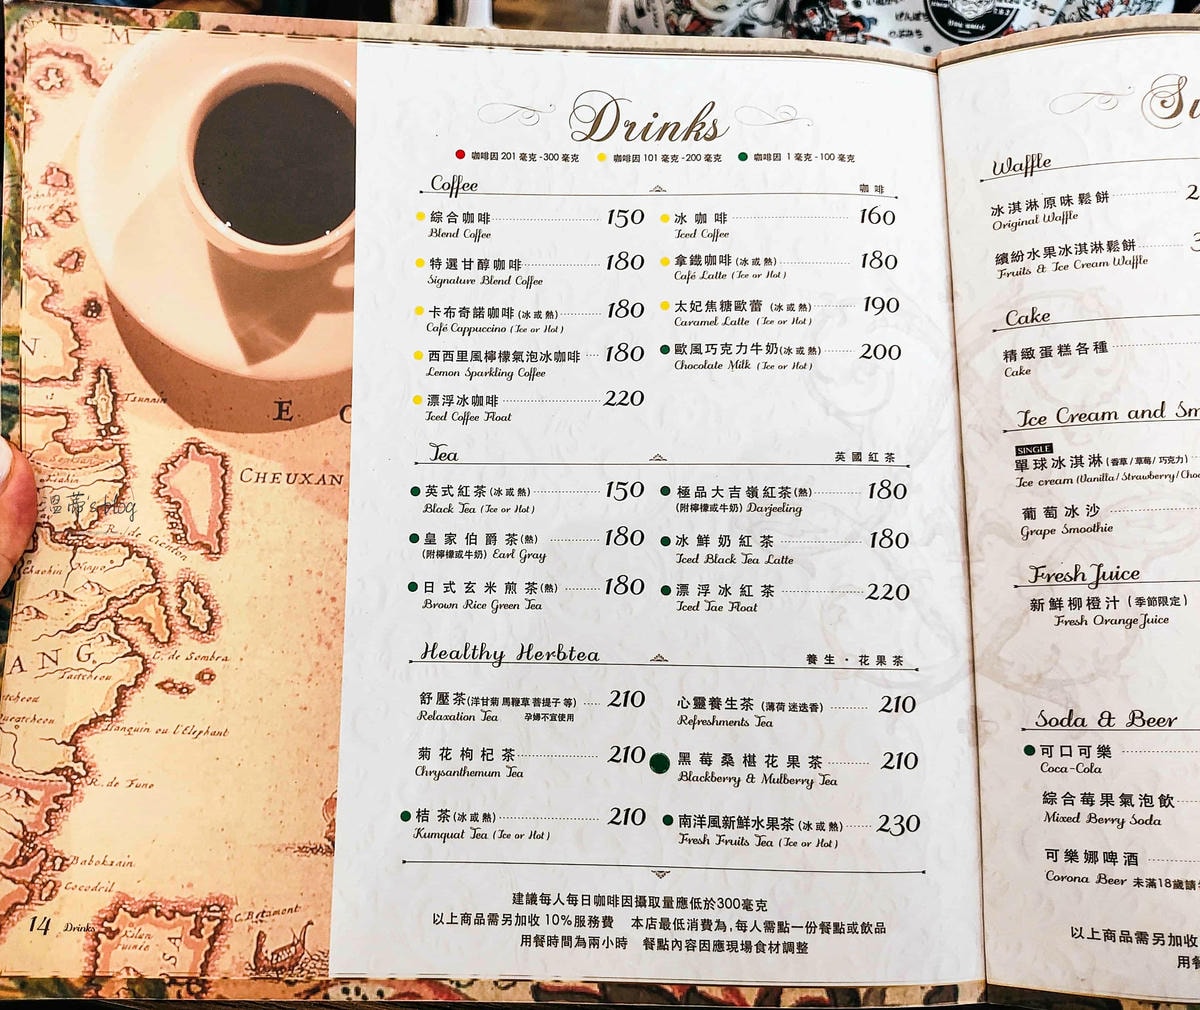 Drinks
咖啡因 201 毫克 -300 毫克 咖啡因 101 毫克 -200 毫克 咖啡因 1 毫克 -100 毫克
Coffee 咖啡
綜合咖啡 150
Blend Coffee
特選甘醇咖啡 180
Signature Blend Coffee
卡布奇諾咖啡 (冰或熱) 180
Café Cappuccino (Ice or Hot)
西西里風檸檬氣泡冰咖啡 180
Lemon Sparkling Coffee
漂浮冰咖啡 220
Iced Coffee Float
冰咖啡 160
Iced Coffee
拿鐵咖啡 (冰或熱) 180
Café Latte (Ice or Hot)
太妃焦糖歐蕾 (冰或熱) 190
Caramel Latte (Ice or Hot)
歐風巧克力牛奶(冰或熱) 200
Chocolate Milk (Ice or Hot)
Tea 英國紅茶
英式紅茶(冰或熱) 150
Black Tea (Ice or Hot)
皇家伯爵茶(熱) 180
(附檸檬或牛奶) Earl Gray
日式玄米煎茶(熱) 180
Brown Rice Green Tea
極品大吉嶺紅茶(熱) 180
(附檸檬或牛奶) Darjeeling
冰鮮奶紅茶 180
Iced Black Tea Latte
漂浮冰紅茶 220
Iced Tae Float
Healthy Herbtea 養生・花果茶
舒壓茶(洋甘菊 馬鞭草 菩提子 等) 210
Relaxation Tea 孕婦不宜使用
菊花枸杞茶 210
Chrysanthemum Tea
桔茶(冰或熱) 210
Kumquat Tea (Ice or Hot)
心靈養生茶 (薄荷 迷迭香) 210
Refreshments Tea
黑莓桑椹花果茶 210
Blackberry & Mulberry Tea
南洋風新鮮水果茶 (冰或熱) 230
Fresh Fruits Tea (Ice or Hot)
建議每人每日咖啡因攝取量應低於300毫克
以上商品需另加收 10%服務費 本店最低消費為,每人需點一份餐點或飲品
用餐時間為兩小時 餐點內容因應現場食材調整
14 Drinks
溫蒂's blog
CHEUXAN
E
ANG
Waffle
冰淇淋原味鬆餅 2
Original Waffle
繽紛水果冰淇淋鬆餅 3
Fruits & Ice Cream Waffle
Cake
精緻蛋糕各種
Cake
Ice Cream and Sm
SINGLE
單球冰淇淋 (香草/草莓/巧克力)
Ice cream (Vanilla/Strawberry/Choc
葡萄冰沙
Grape Smoothie
Fresh Juice
新鮮柳橙汁 (季節限定)
Fresh Orange Juice
Soda & Beer
可口可樂
Coca-Cola
綜合莓果氣泡飲
Mixed Berry Soda
可樂娜啤酒
Corona Beer 未滿18歲請
以上商品需另加收
用餐